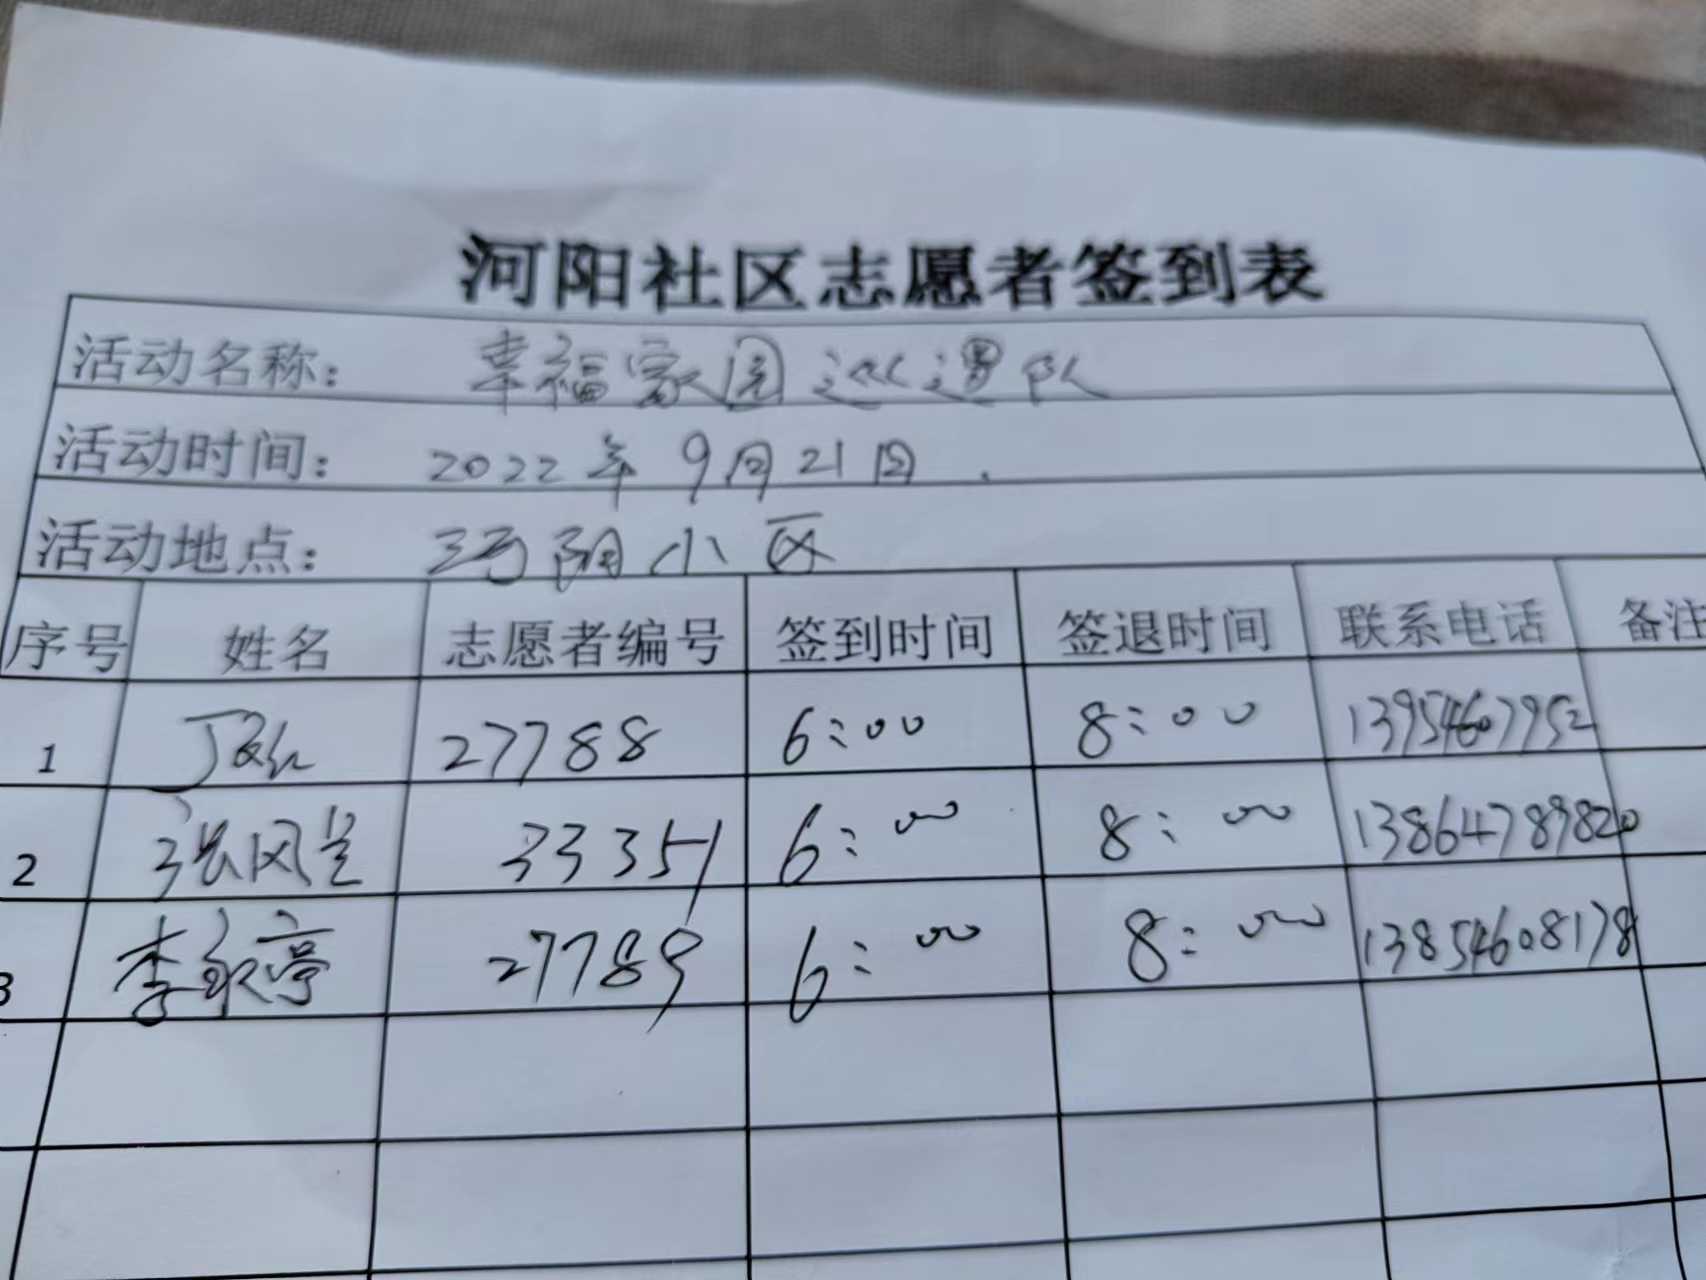 河阳社区志愿者签到表
活动名称: 幸福家园巡逻队
活动时间: 2022年9月21日.
活动地点: 河阳小区
序号 姓名 志愿者编号 签到时间 签退时间 联系电话 备注
1 丁 27788 6:00 8:00 13954607952
2 张风兰 33351 6:00 8:00 13864789820
3 李永亭 27789 6:00 8:00 13854608178